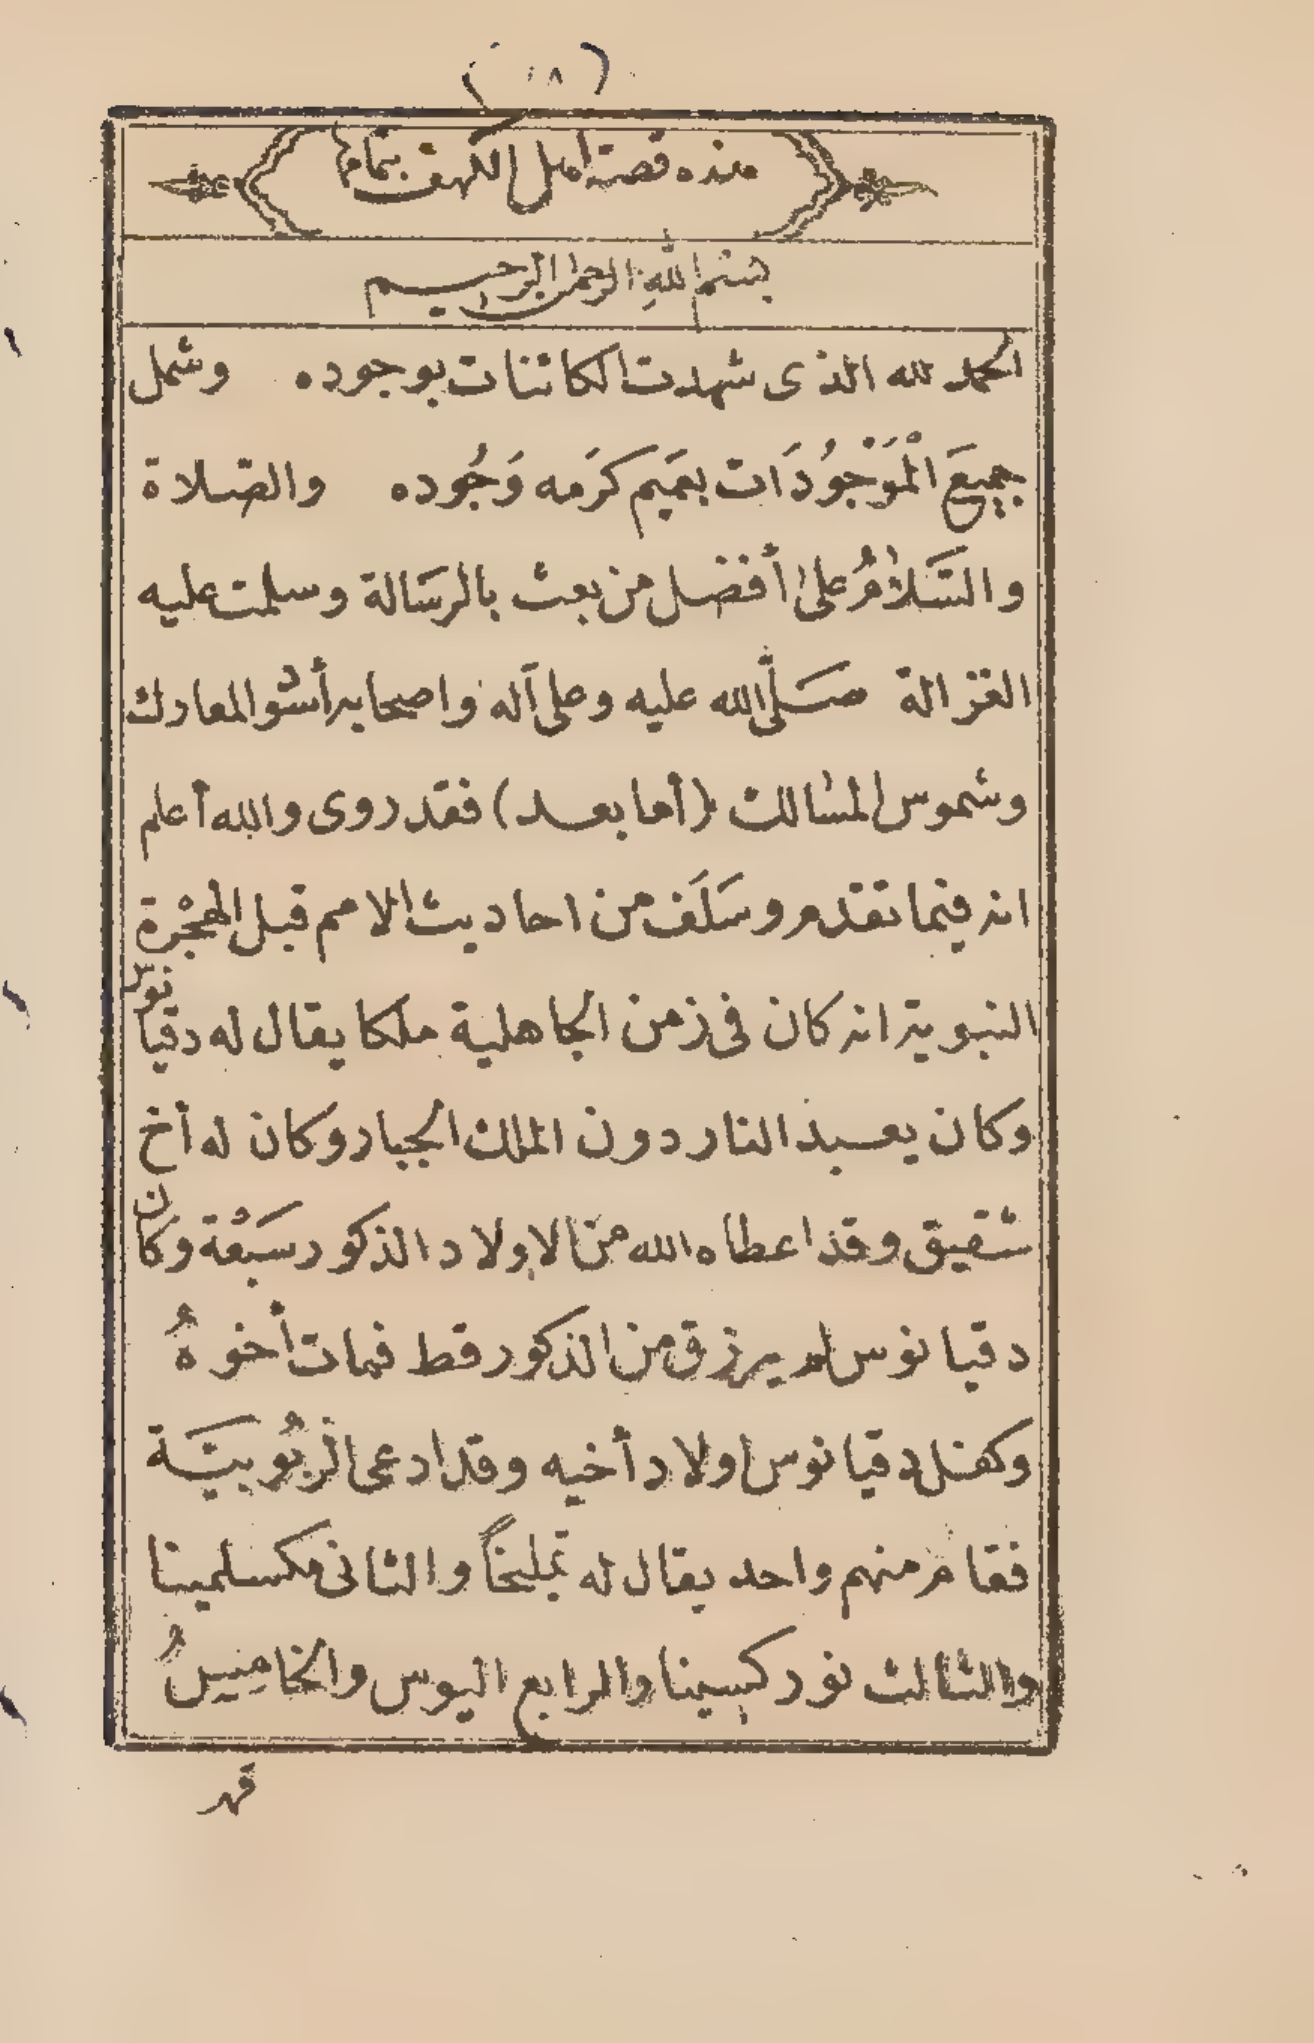 (١٨)
هذه قصة اهل الكهف بتمامها
بسم الله الرحمن الرحيم
الحمد لله الذى شهدت الكائنات بوجوده وشمل
جميعَ الْمَوْجُودَات بعَميم كرَمه وَجُوده والصّلاة
والسَّلامُ على أفضل من بعث بالرسَالة وسلمت عليه
الغزالة صَلَّى الله عليه وعلى آله واصحابه أسْد المعارك
وشموس المسالك (أما بعد) فقد روى والله أعلم
انه فيما تقدم وسَلَف من احاديث الامم قبل الهجْرة
النبوية انه كان فى زمن الجاهلية ملكا يقال له دقيانوس
وكان يعبد النار دون الملك الجبار وكان له أخ
شقيق وقد اعطاه الله من الاولاد الذكور سَبْعة وكان
دقيانوس لم يرزق من الذكور قط فمات أخوهُ
وكفل دقيانوس اولاد أخيه وقد ادعى الرّبُوبيَّة
فقام منهم واحد يقال له تمليخاً والثانى مكسلمينا
والثالث نوركسينا والرابع اليوس والخامِسُ